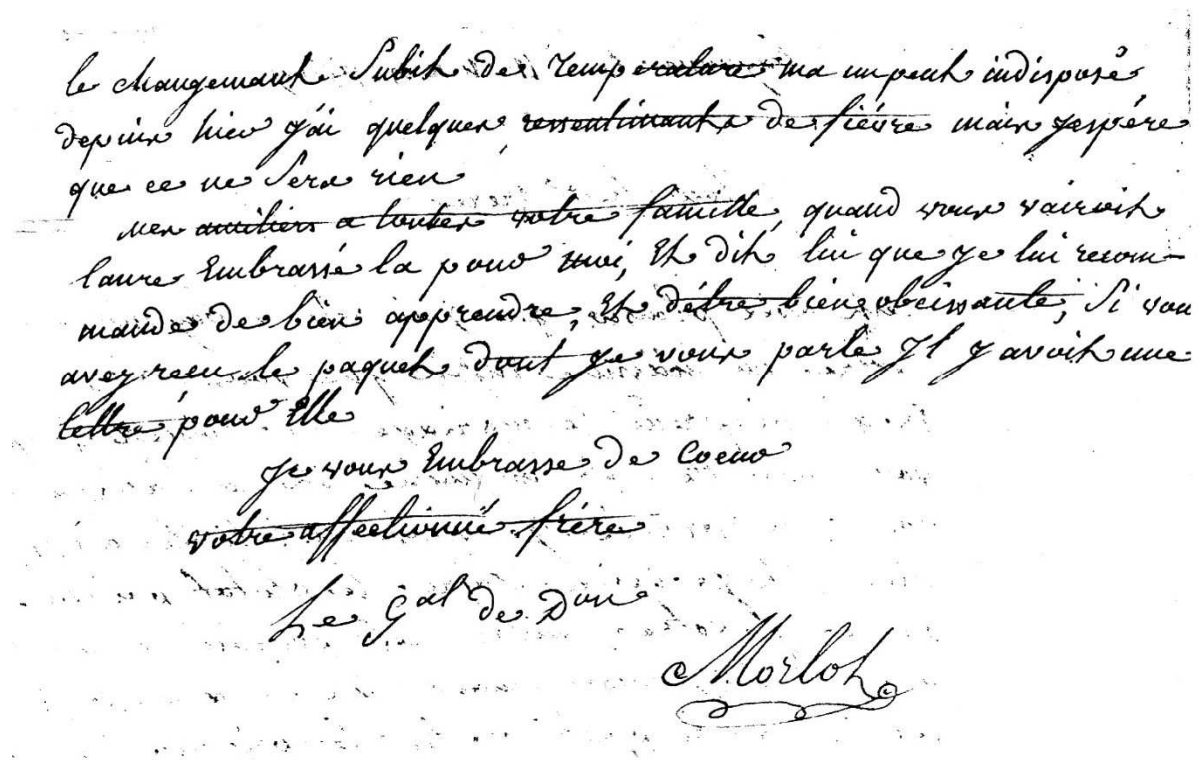 le changemant Subit de temperature ma un peut indisposé,
depuis hier j'ai quelques ressentimants de fiévre mais j'espére
que ce ne Sera rien
mes amitiers a toutes votre famille, quand vous vairoit
laure Embrassé la pour moi, Et dit lui que je lui recom-
mande de bien apprendre, Et d'étre bien obeissante, Si vous
avez reçu le paquet dont je vous parle Jl y avoit une
lettre pour Elle
je vous Embrasse de Coeur
votre affectionné frére
Le Gal de Don
Morlot